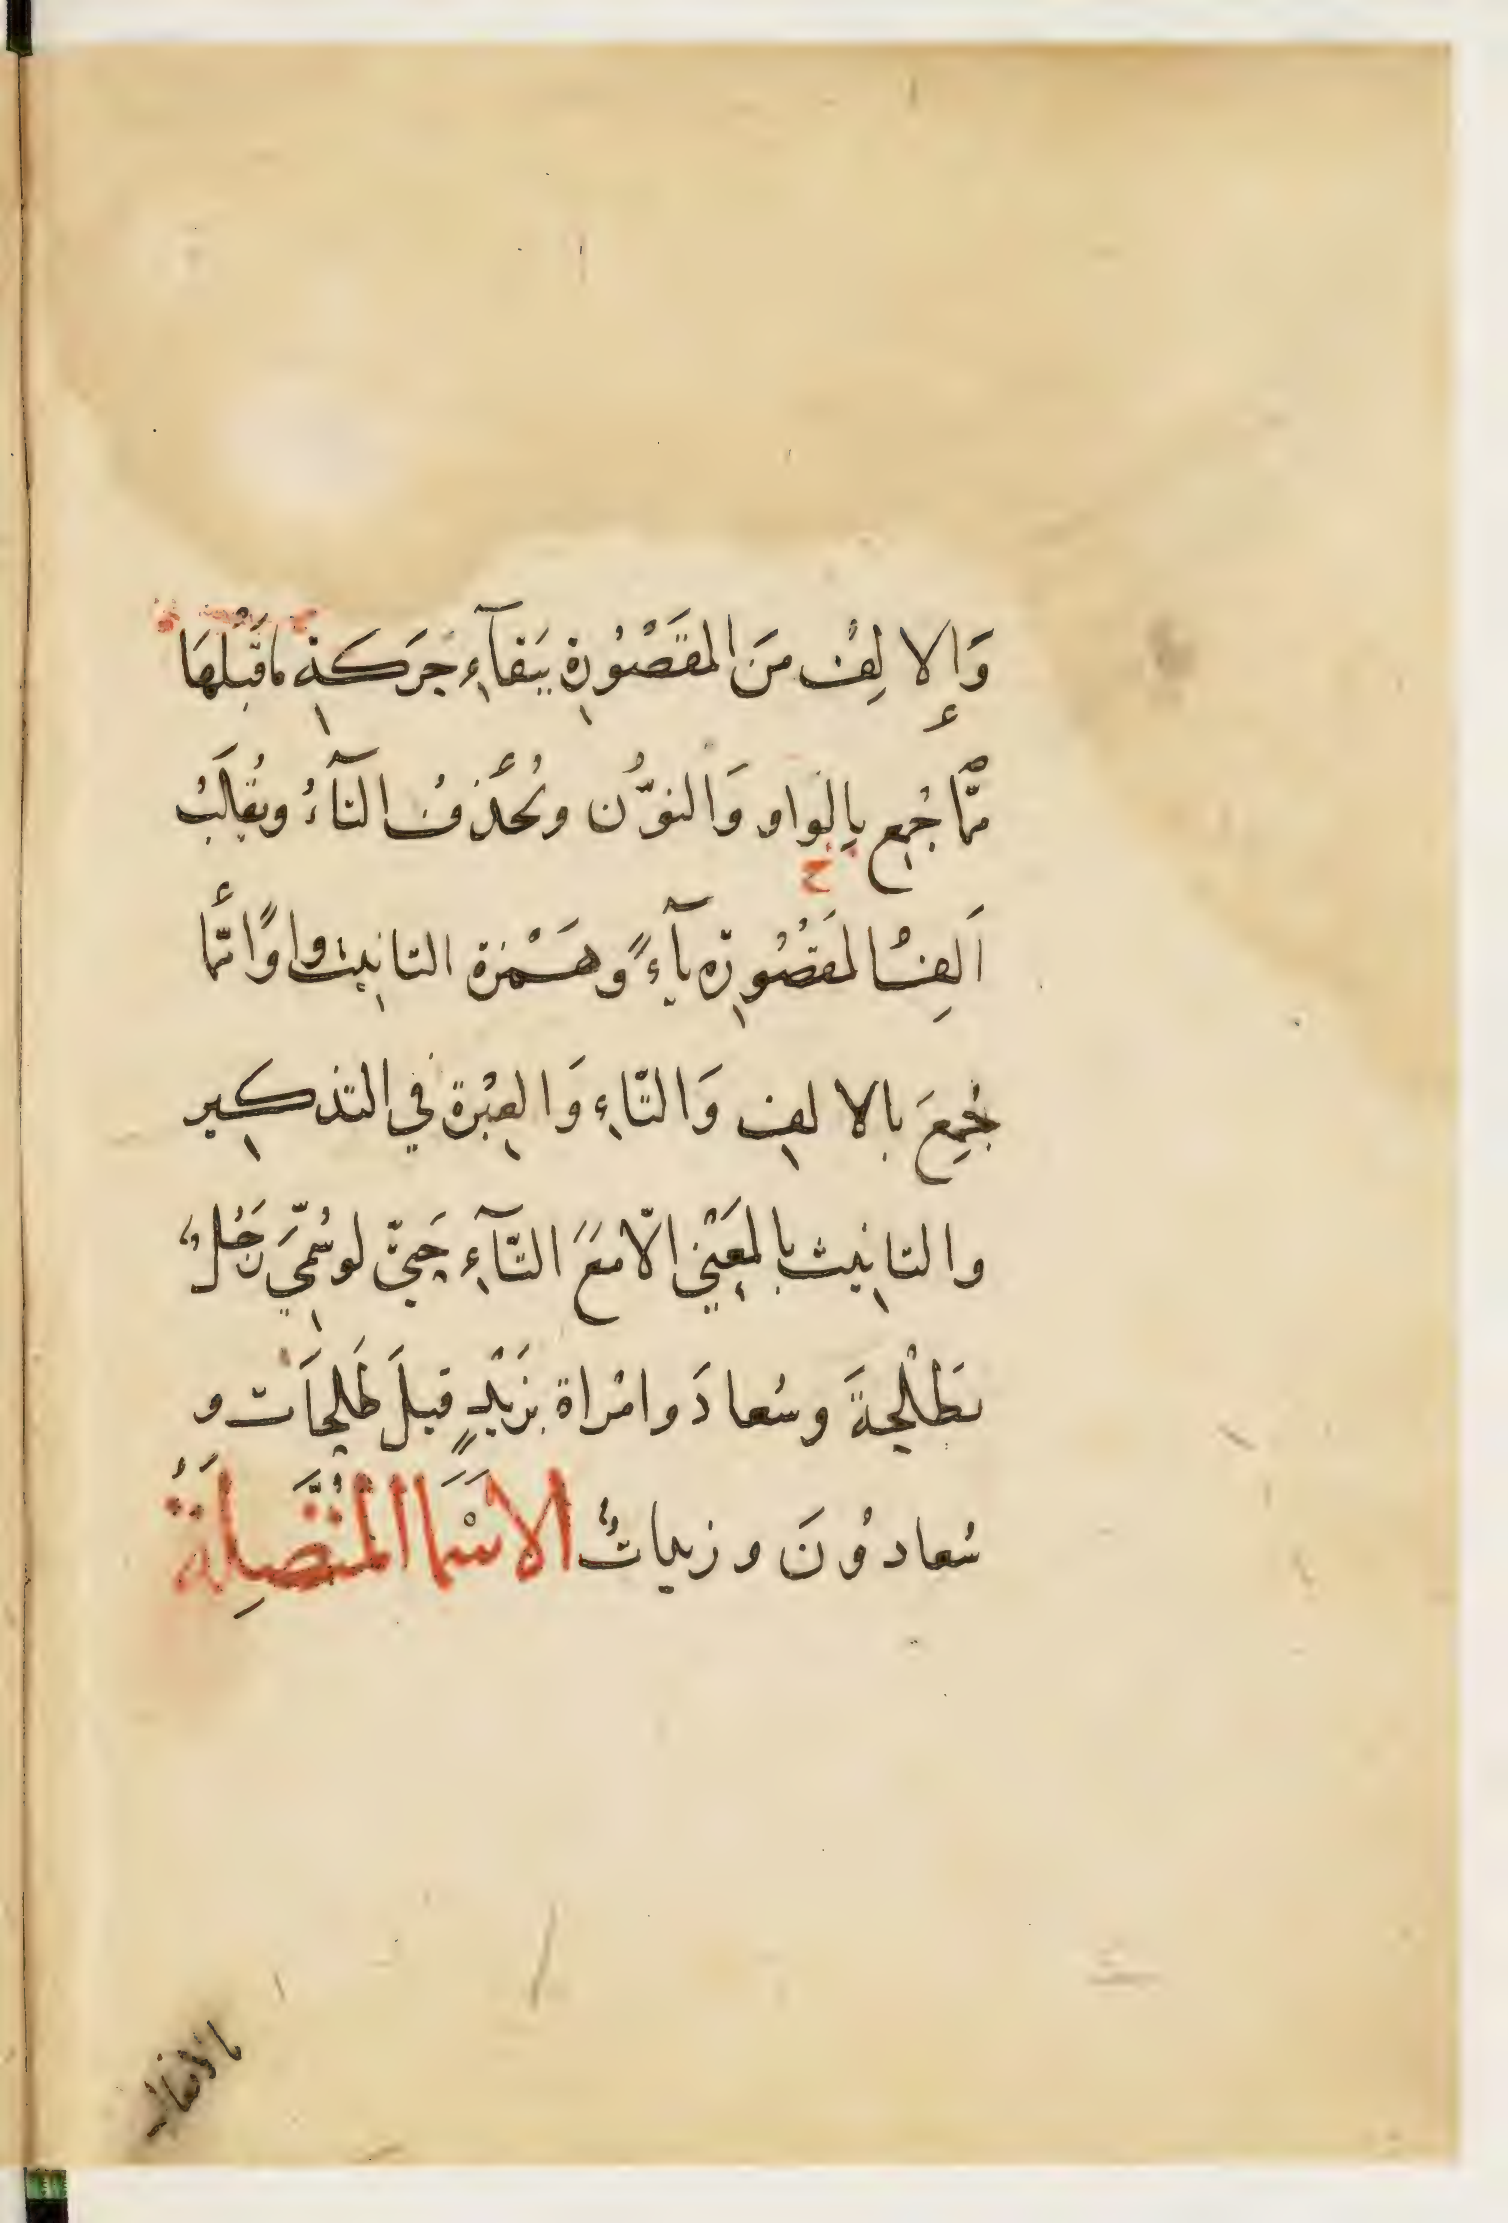 وَإلالِفُ مِنَ المَقصُورَةِ بِبَقآءِ حَرَكةِ ماقَبلَهَا
مّمَا جُمِع بِالواو وَالنوُّن وتُحْذَفُ التآءُ وتُقلَبُ
اَلِفُ المَقصُورةِ يآءً وهَمْزة التانيث واوًا ممّا
جُمِعَ بالالفِ وَالتّاءِ وَالعِبْرة في التذكِير
والتانيث بالمعَنْي الّا مَعَ التّآءِ حَتيّ لو سُمّيَ رَجُلٌ
بطَلْحةَ وسُعادَ وامْراة بزَيْدٍ قيلَ طَلحَات و
سُعادوُنَ وزيداتٌ الاسْمَا المُتَّصِلَةُ
بالافعال